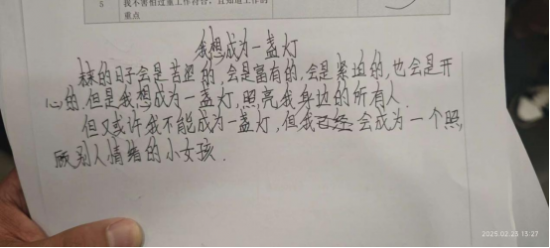 5 我不害怕过重工作符合，且知道工作的
重点
我想成为一盏灯
未来的日子会是苦涩的，会是富有的，会是紧迫的，也会是开
心的，但是我想成为一盏灯，照亮我身边的所有人．
但又或许我不能成为一盏灯，但我会成为一个照
顾别人情绪的小女孩．
2025.02.23 13:27